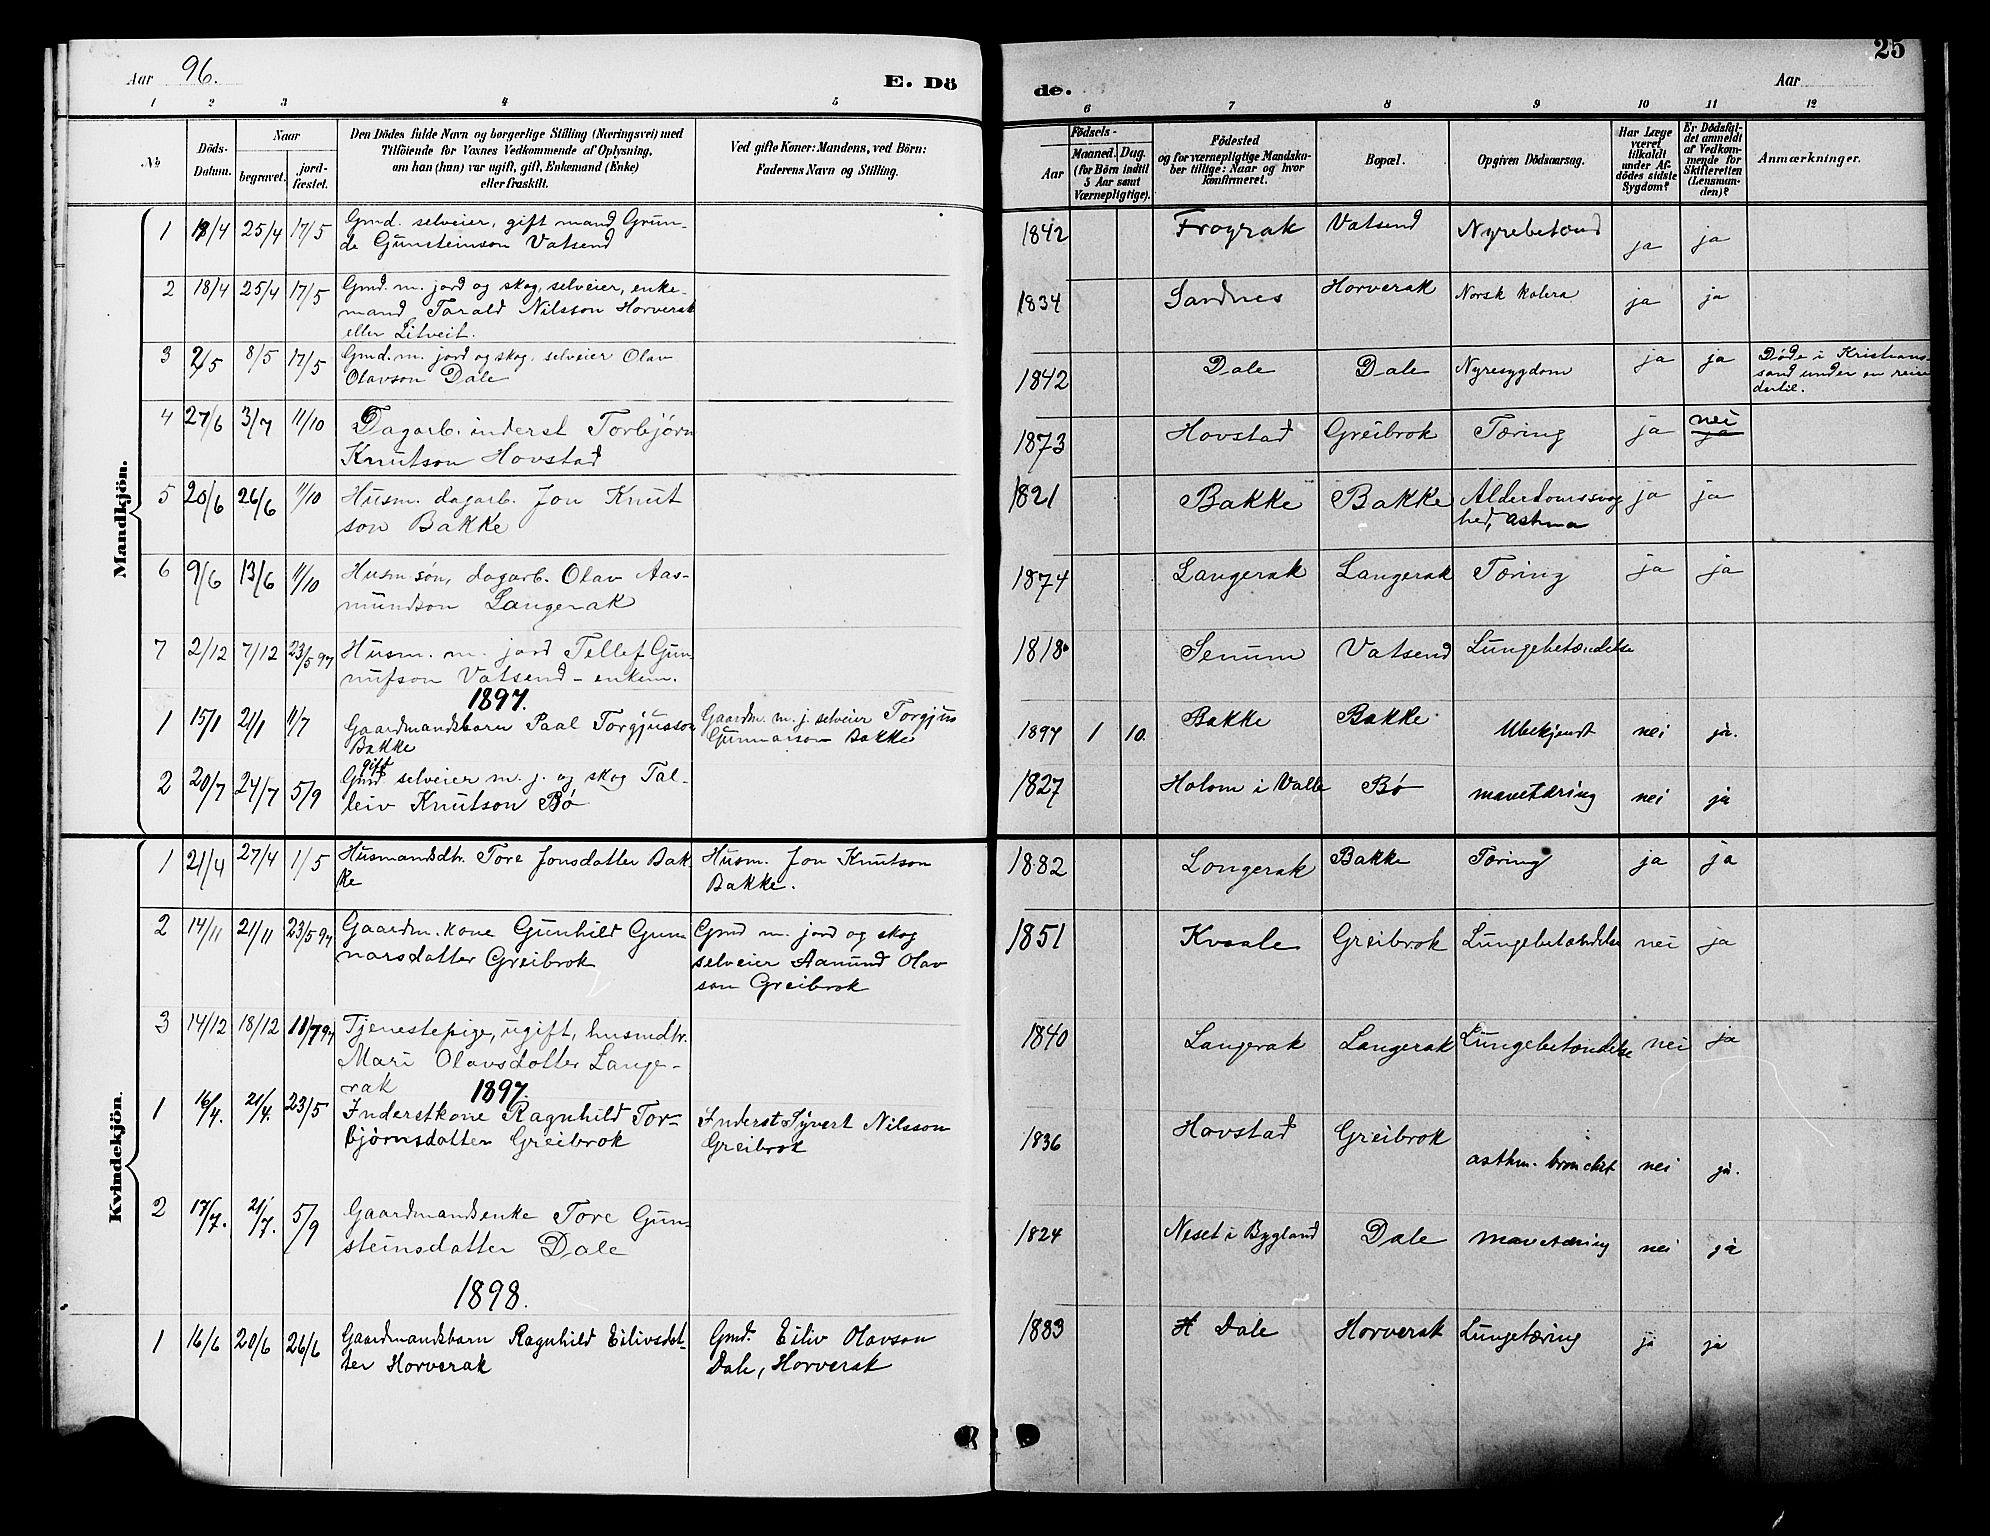 Aar 96.
E. Dö
1 2 3 4 5
№
Döds-
Datum.
Naar
begravet.
jord-
fæstet.
Den Dödes fulde Navn og borgerlige Stilling (Næringsvei) med
Tilföiende for Voxnes Vedkommende af Oplysning,
om han (hun) var ugift, gift, Enkemand (Enke)
eller fraskilt.
Ved gifte Koner: Mandens, ved Börn:
Faderens Navn og Stilling.
Mandkjön.
1 18/4 25/4 17/5 Gmd. selveier, gift mand Grun-
de Gunsteinson Vatsend
2 18/4 25/4 17/5 Gmd. m. jord og skog, selveier, enke-
mand Tarald Nilsson Horverak
eller Litveit.
3 2/5 8/5 17/5 Gmd. m. jord og skog, selveier Olav
Olavson Dale
4 27/6 3/7 11/10 Dagarb. inderst Torbjørn
Knutson Hovstad
5 20/6 26/6 11/10 Husm. dagarb. Jon Knut
son Bakke
6 9/6 13/6 11/10 Husm søn, dagarb. Olav Aas-
mundson Langerak
7 2/12 7/12 23/5 97 Husm. m. jord Tellef Gun-
nufson Vatsend - enkem.
1897.
1 15/1 21/1 11/7 Gaardmandsbarn Paal Torgjusson Gaardm. m. j. selveier Torgjus
Bakke Gunnarson Bakke
gift
2 20/7 24/7 5/9 Gmd selveier m. j. og skog Tal-
leiv Knutson Bø
Kvindekjön.
1 21/4 27/4 1/5 Husmandsdtr. Tore Jonsdatter Bak- Husm. Jon Knutson
ke Bakke.
2 14/11 21/11 23/5 97 Gaardm. kone Gunhild Gun Gmd m. jord og skog
narsdatter Greibrok selveier Aanund Olav
son Greibrok
3 14/12 18/12 11/7 97 Tjenestepige, ugift, husmdtr.
Mari Olavsdatter Lange-
rak
1897.
1 16/4. 21/4. 23/5 Inderstkone Ragnhild Tor- Inderst Syvert Nilsson
bjørnsdatter Greibrok Greibrok
2 17/7. 21/7. 5/9 Gaardmandsenke Tore Gun-
steinsdatter Dale
1898.
1 16/6 20/6 26/6 Gaardmandsbarn Ragnhild Eilivsdat- Gmd. Eiliv Olavson
ter Horverak Dale, Horverak
25
de.
Aar
6 7 8 9 10 11 12
Födsels-
Aar
Maaned. Dag.
(for Börn indtil
5 Aar samt
Værnepligtige).
Födested
og for værnepligtige Mandska-
ber tillige: Naar og hvor
konfirmeret.
Bopæl.
Opgiven Dödsaarsag.
Har Læge
været
tilkaldt
under Af-
dödes sidste
Sygdom?
Er Dödsfal-
det anmeldt
af Vedkom-
mende for
Skifteretten
(Lensman-
den)?
Anmærkninger.
1842 Frøyrak Vatsend Nyrebetænd ja ja
1834 Sandnes Horverak Norsk kolera ja ja
1842 Dale Dale Nyresygdom ja ja Døde i Kristians-
sand under en reise
dertil.
nei
1873 Hovstad Greibrok Tæring ja ja
1821 Bakke Bakke Alderdomssvag ja ja
hed, astma
1874 Langerak Langerak Tæring ja ja
1818 Senum Vatsend Lungebetændelse
1897 1 10. Bakke Bakke Ubekjendt nei ja.
1827 Holom i Valle Bø mavetæring nei ja
1882 Longerak Bakke Tæring ja ja
1851 Kvaale Greibrok Lungebetændelse nei ja
1840 Langerak Langerak Lungebetændelse nei ja
1836 Hovstad Greibrok asthm. bronchit nei ja.
1824 Neset i Bygland Dale mavetæring nei ja
1883 H Dale Horverak Lungetæring ja ja